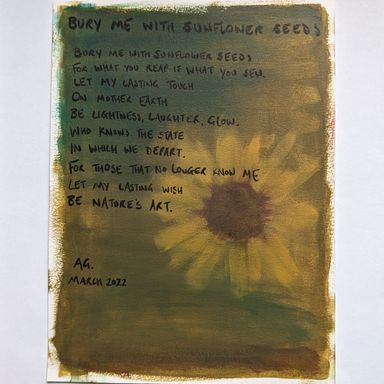 BURY ME WITH SUNFLOWER SEEDS
BURY ME WITH SUNFLOWER SEEDS
FOR WHAT YOU REAP IF WHAT YOU SEW.
LET MY LASTING TOUCH
ON MOTHER EARTH
BE LIGHTNESS, LAUGHTER, GLOW.
WHO KNOWS THE STATE
IN WHICH WE DEPART.
FOR THOSE THAT NO LONGER KNOW ME
LET MY LASTING WISH
BE NATURE'S ART.
AG.
MARCH 2022